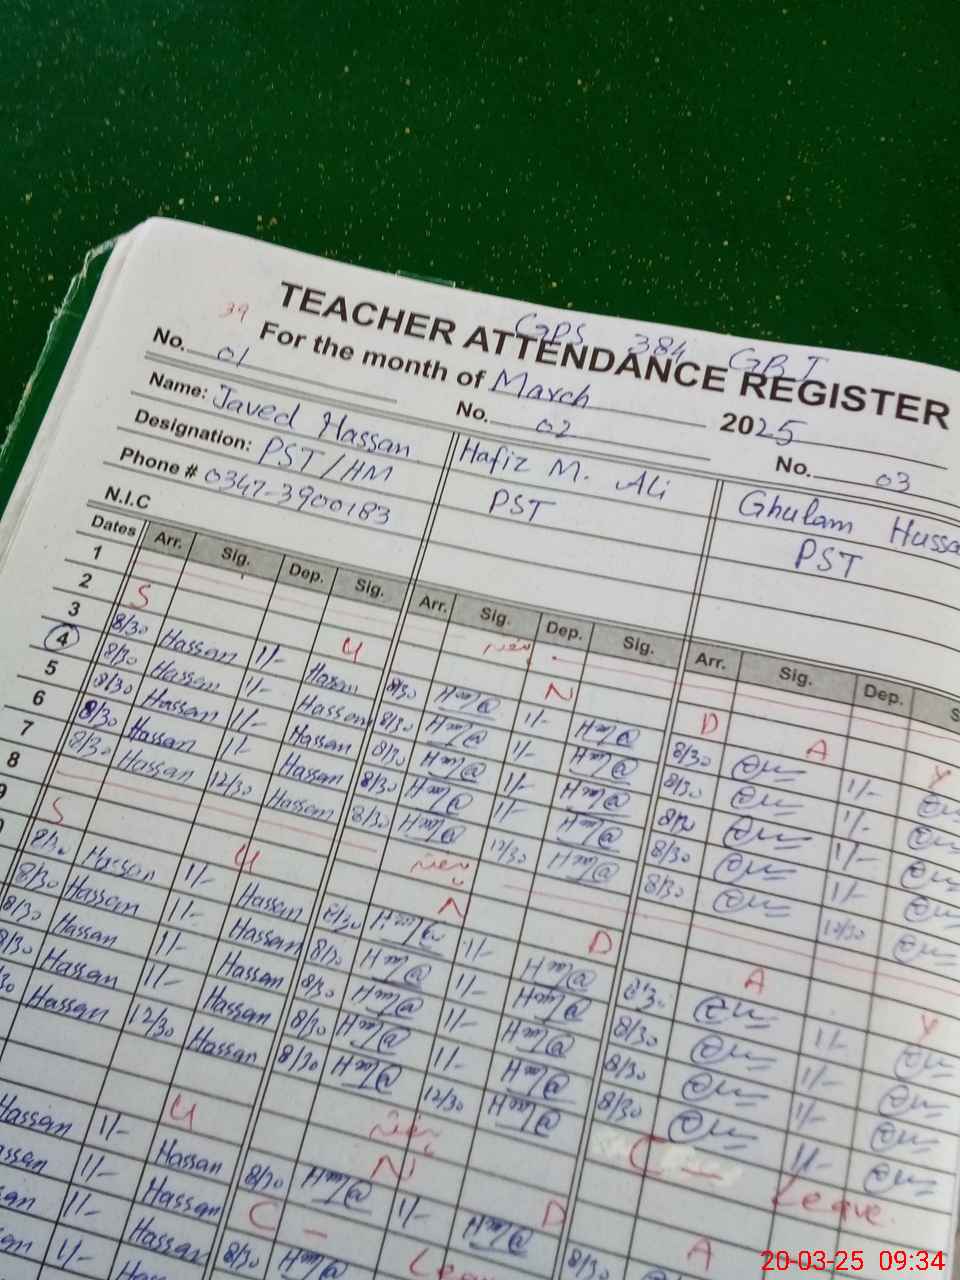 TEACHER ATTENDANCE REGISTER
GPS 384 GBT
39
For the month of March 2025
No. 01 No. 02 No. 03
Name: Javed Hassan Hafiz M. Ali Ghulam Hussa
Designation: PST/HM PST PST
Phone # 0347-3900183
N.I.C
Dates Arr. Sig. Dep. Sig. Arr. Sig. Dep. Sig. Arr. Sig. Dep. S
1
2 S U N D A Y
3 8/30 Hassan 1/- Hassan 8/30 1/- 8/30 1/-
4 8/30 Hassan 1/- Hassan 8/30 1/- 8/30 1/-
5 8/30 Hassan 1/- Hassan 8/30 1/- 8/30 1/-
6 8/30 Hassan 1/- Hassan 8/30 1/- 8/30 1/-
7 8/30 Hassan 12/30 Hassan 8/30 12/30 8/30 12/30
8
9 S U N D A Y
8/30 Hassan 1/- Hassan 8/30 1/- 8/30 1/-
8/30 Hassan 1/- Hassan 8/30 1/- 8/30 1/-
8/30 Hassan 1/- Hassan 8/30 1/- 8/30 1/-
8/30 Hassan 1/- Hassan 8/30 1/- 8/30 1/-
Hassan 12/30 Hassan 8/30 12/30 C - Leave
U N D A
Hassan 1/- Hassan 8/30 1/- 8/30
1/- Hassan C - Leave
1/- Hassan 8/30
1/- Hassan
20-03-25 09:34